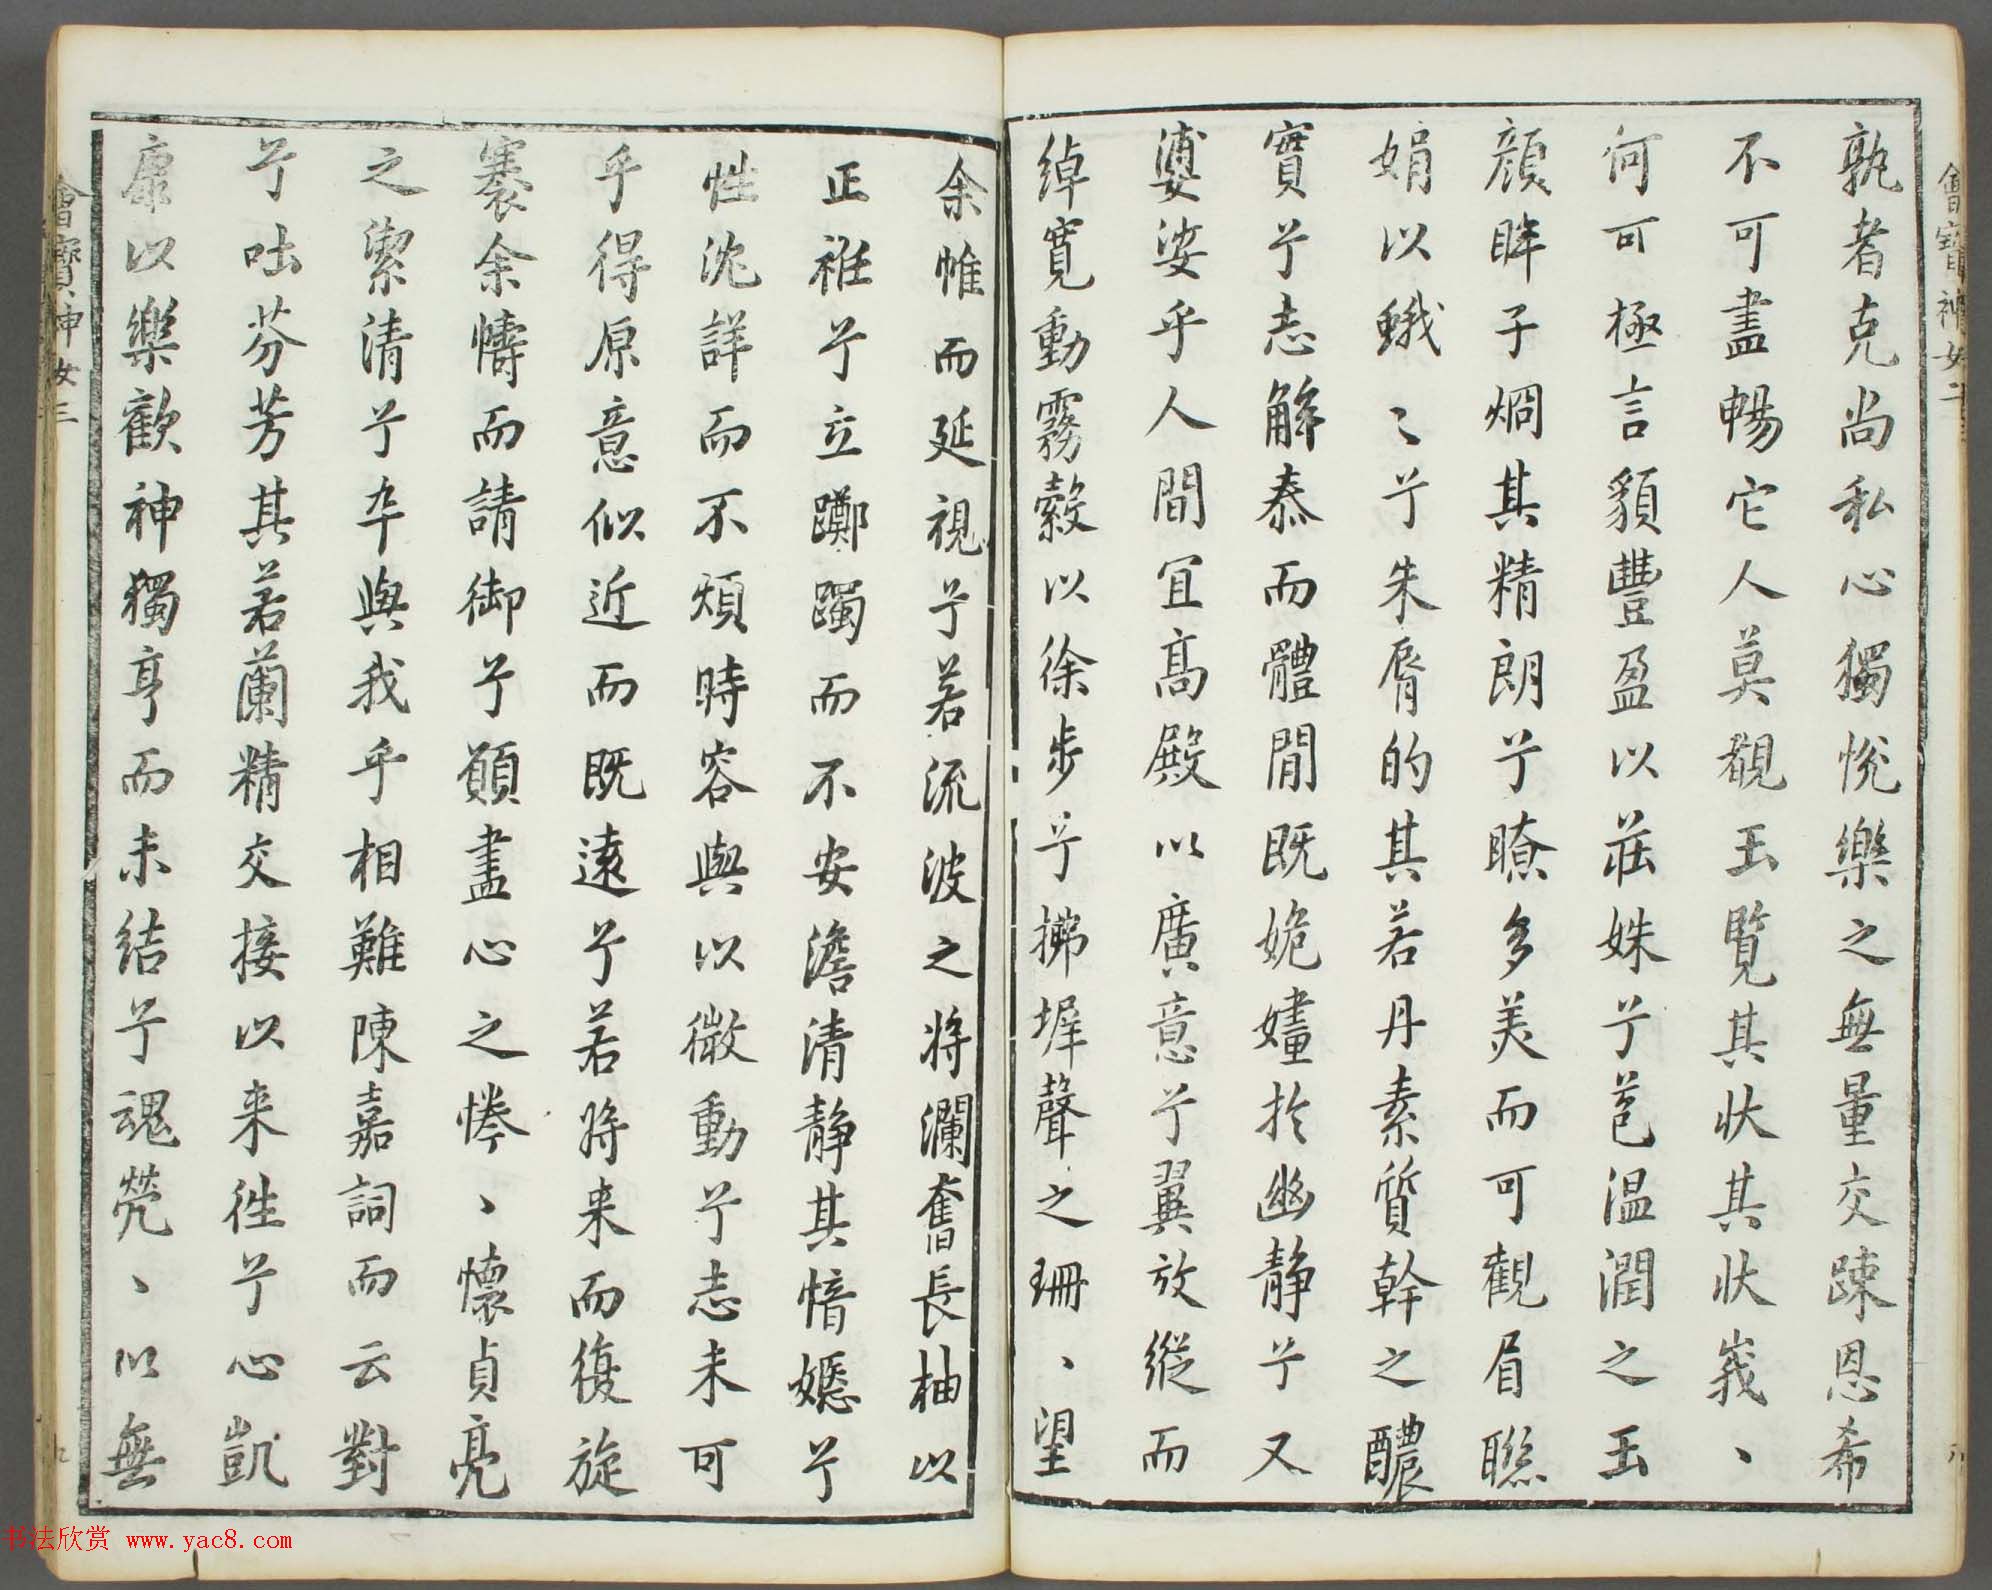 孰者克尚私心獨悅樂之無量交踈恩希
不可盡暢它人莫覩玉覧其狀其狀峩、
何可極言貌豐盈以莊姝兮苞温潤之玉
顔眸子烱其精朗兮瞭多美而可觀眉聮
娟以蛾〻兮朱脣的其若丹素質幹之醲
實兮志解泰而體閒既姽嫿扵幽静兮又
婆娑乎人間宜髙殿以廣意兮翼放縱而
綽寛動霧縠以徐步兮拂墀聲之珊、望
余帷而延視兮若流波之将瀾奮長柚以
正袵兮立躑躅而不安澹清静其愔嫕兮
性沈詳而不煩時容與以微動兮志未可
乎得原意似近而既遠兮若将来而復旋
褰余幬而請御兮願盡心之惓、懷貞亮
之潔清兮卒與我乎相難陳嘉詞而云對
兮吐芬芳其若蘭精交接以来徃兮心凱
康以樂歡神獨亨而未結兮魂煢、以無
會寶神女二
會寶神女三
八
九
书法欣赏 www.yac8.com